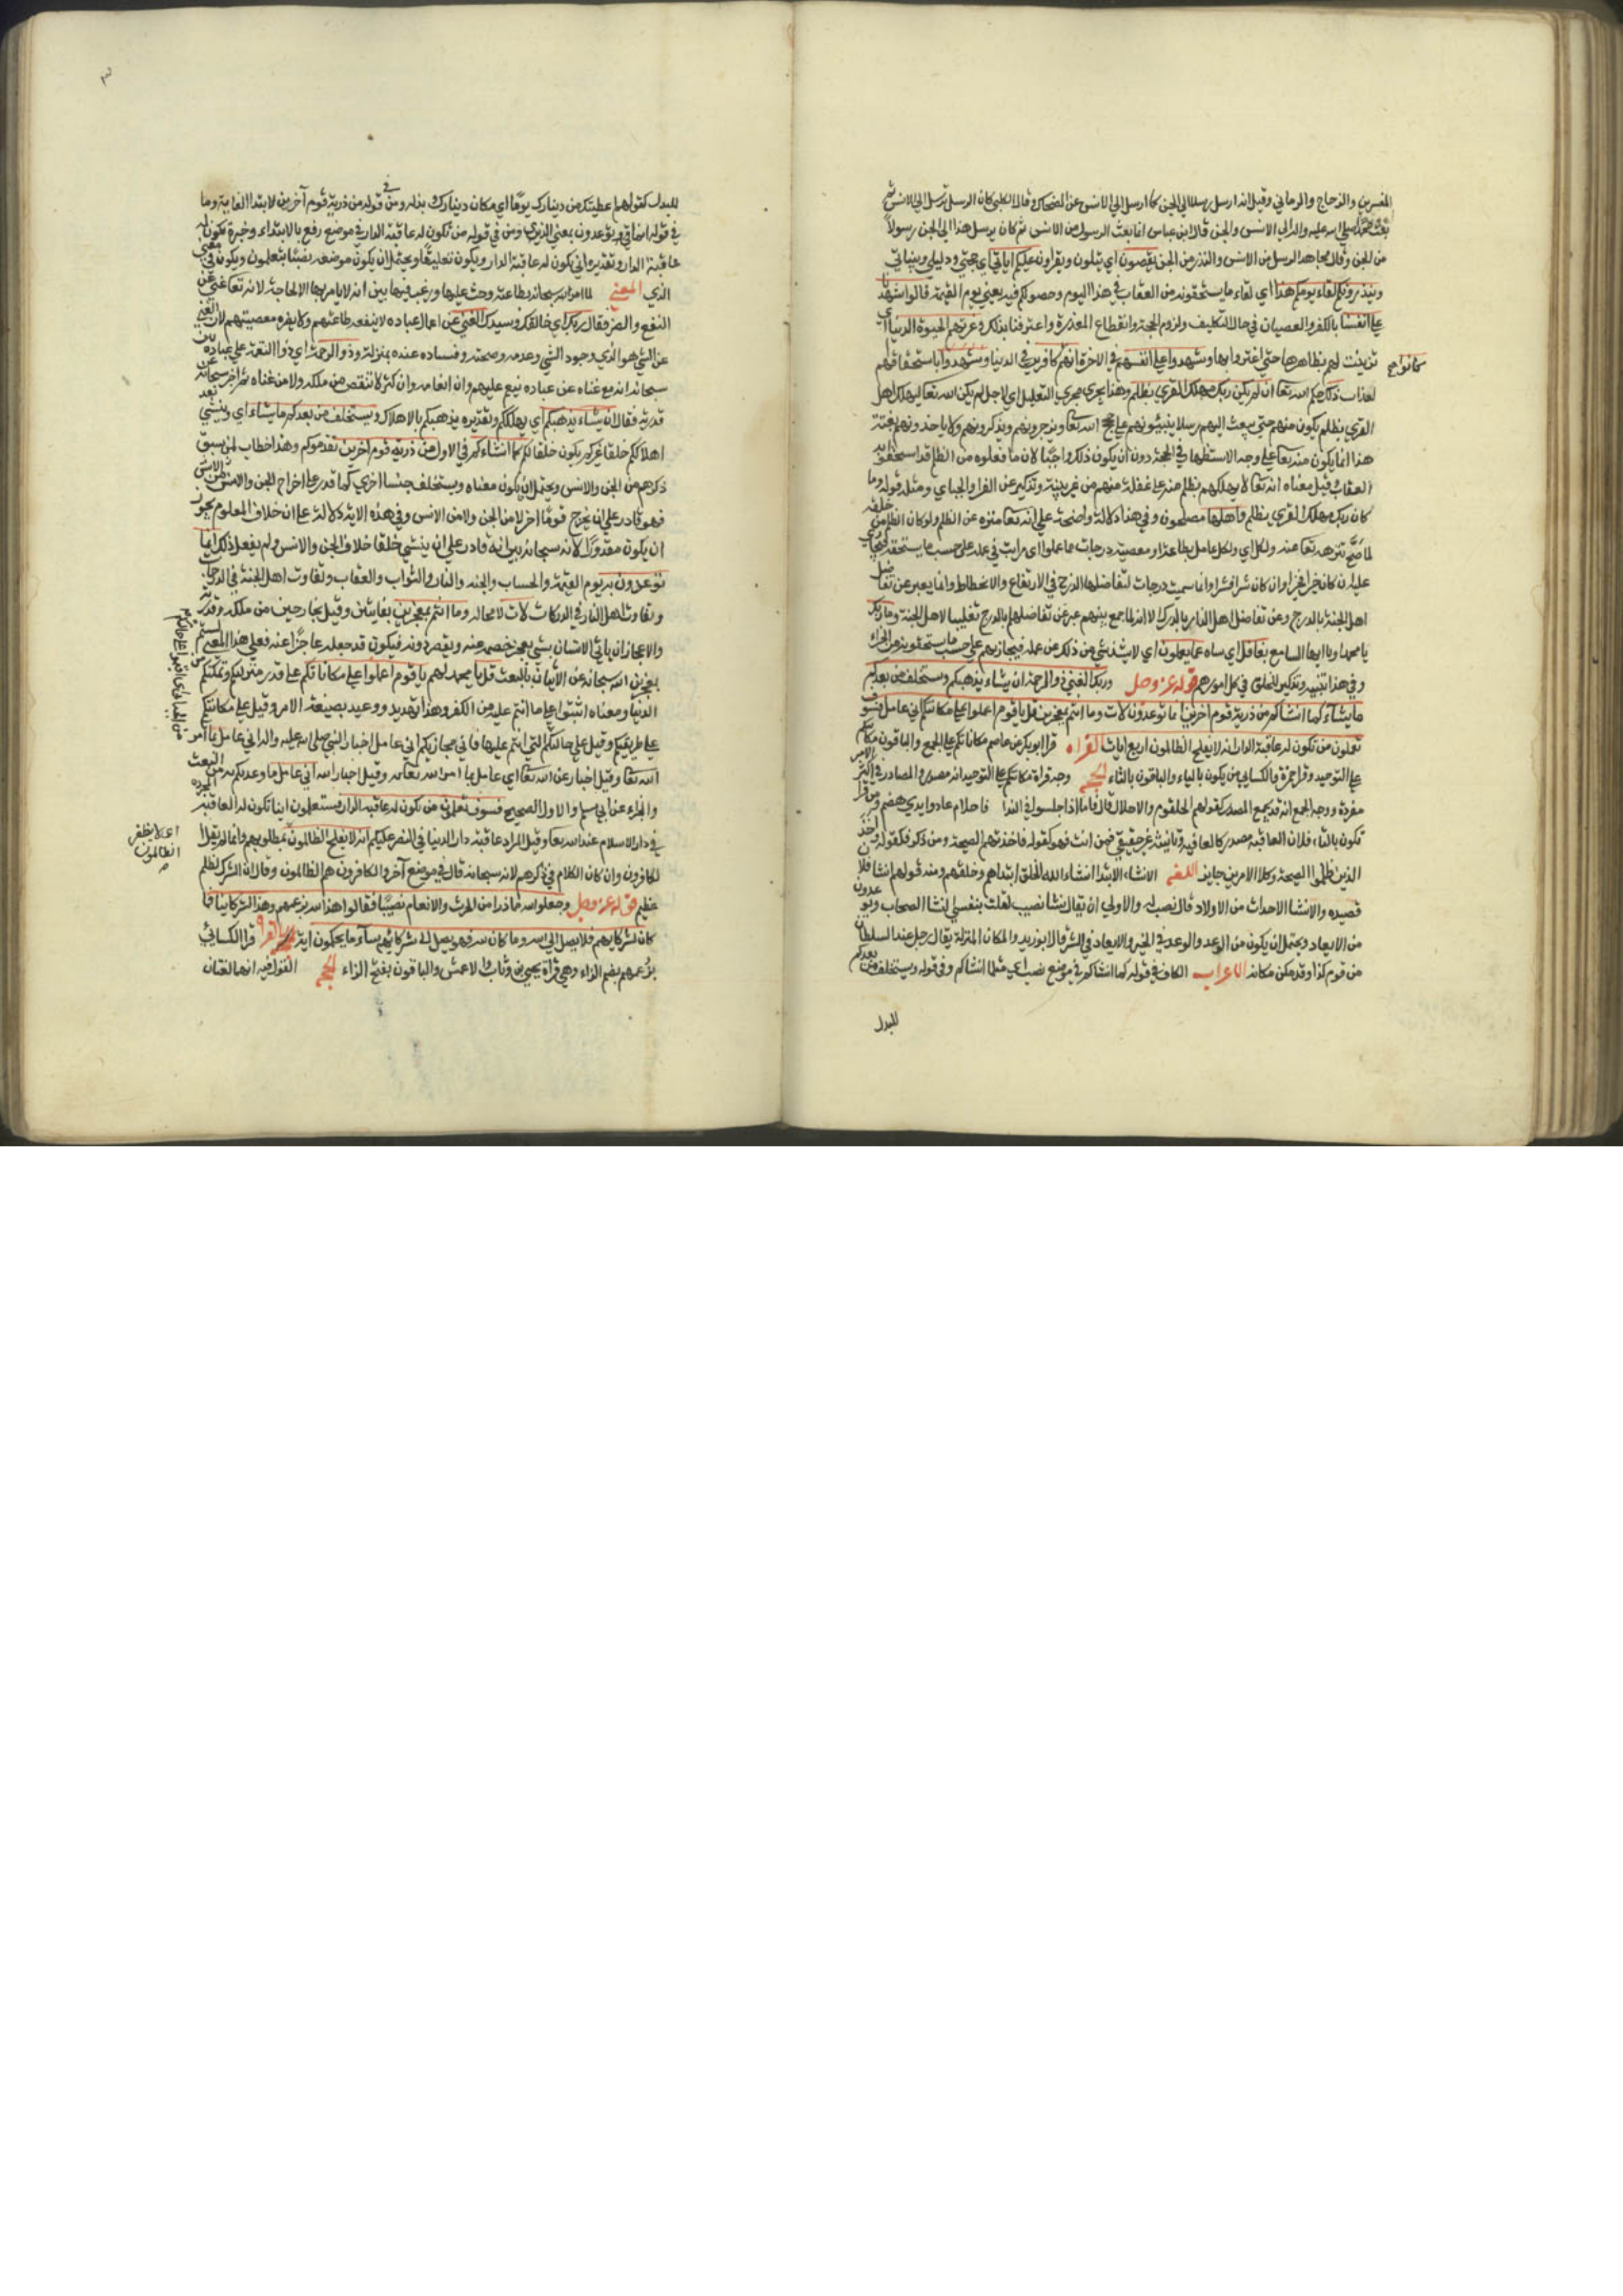 المفسرين والزجاج والرماني وقيل انه ارسل رسلا الي الجن كما ارسل الي الانس عن الضحاك وقال الكلبي كان الرسل ترسل الي الانس ثم
بعث محمد صلي الله عليه واله الي الانس والجن قال ابن عباس انما بعث الرسول من الانس ثم كان يرسل هذا الي الجن رسولاً
من الجن وقال مجاهد الرسل من الانس والنذر من الجن يقصون اي يتلون ويقراون عليكم اياتي اي حججي ودلايلي وبيناتي
وينذرونكم لقاء يومكم هذا اي لقاء ما يستحقونه من العقاب في هذا اليوم وحصولكم فيه يعني يوم القيمة قالوا شهدنا
علي انفسنا بالكفر والعصيان في حال التكليف ولزوم الحجة وانقطاع المعذرة واعترفنا بذلك وغرتهم الحيوة الدنيا اي
تزينت لهم بظاهرها حتي اغتروا بها وشهدوا علي انفسهم في الاخرة انهم كانوا كافرين في الدنيا وشهدوا باستحقاقهم
العذاب ذلك حكم الله تعا ان لم يكن ربك مهلك القري بظلم وهذا يجري مجري التعليل اي لاجل لم يكن الله تعا ليهلك اهل
القري بظلم يكون منهم حتي يبعث اليهم رسلا ينبهونهم علي حجج الله تعا ويزجرونهم ويذكرونهم ولا ياخذونهم بغتة
هذا انما يكون منه تعا علي وجه الاستظهار في الحجة دون ان يكون ذلك واجبًا لان ما فعلوه من الظلم قد استحقوا به
العقاب وقيل معناه انه تعا لا يهلكهم بظلم منه علي غفلة منهم من غير تنبيه وتذكير عن الفرا والجباي ومثله قوله وما
كان ربك مهلك القري بظلم واهلها مصلحون وفي هذا دلالة واضحة علي انه تعا منزه عن الظلم ولو كان الظلم من خلقه
لما صح تنزهه تعا عنه ولكل اي ولكل عامل بطاعة او معصية درجات مما عملوا اي مراتب في عمله علي حسب ما يستحقه فيجازي
عليه ان كان خيرا فخيرا وان كان شرا فشرا وانما سميت درجات لتفاضلها كالدرج في الارتفاع والانحطاط وانما يعبر عن تفاضل
اهل الجنة بالدرج وعن تفاضل اهل النار بالدرك الا انه لما جمع بينهم عبر عن تفاضلهم بالدرج تغليبا لاهل الجنة وما ربك
يا محمد او يا ايها السامع بغافل اي ساه عما يعملون اي لا يشذ شي من ذلك عن علمه فيجازيهم علي حسب ما يستحقونه من الجزاء
وفي هذا تنبيه وتذكير للخلق في كل امورهم قوله عز وجل وربك الغني ذو الرحمة ان يشاء يذهبكم ويستخلف من بعدكم
ما يشاء كما انشاكم من ذرية قوم اخرين انما توعدون لات وما انتم بمعجزين قل يا قوم اعملوا علي مكانتكم اني عامل فسوف
تعلمون من تكون له عاقبة الدار انه لا يفلح الظالمون اربع ايات القراه قرا ابو بكر عن عاصم مكاناتكم علي الجمع والباقون مكانتكم
علي التوحيد وقرا حمزة والكسايي من يكون بالياء والباقون بالتاء الحجه وجه قراة مكانتكم علي التوحيد انه مصدر والمصادر في اكثر الامر
مفردة ووجه الجمع انه قد يجمع المصدر كقولهم الحلوم والاحلام قال فاما اذا جلسوا في الندا فاحلام عاد وايدي هضم ومن قرا
تكون بالتاء فلان العاقبة مصدر كالعافية وتانيثه غير حقيقي فمن انث فهو كقوله فاخذتهم الصيحة ومن ذكر فكقوله واخذ
الذين ظلموا الصيحة وكلا الامرين جايز اللغه الانشاء الابتدا انشاء الله الخلق ابتداهم وخلقهم ومنه قولهم انشا فلان
قصيده والانشا الاحداث من الاولاد قال نصيب ولولا ان يقال صبا نصيب لقلت بنفسي النشا الصغار وتوعدون
من الايعاد ويحتمل ان يكون من الوعد والوعد في الخير والايعاد في الشر قال ابو زيد والمكان المنزلة يقال رجل عند السلطان
من قوم كذا وقد مكن مكانة الاعراب الكاف في قوله كما انشاكم في موضع نصب اي مثل ما انشاكم ومن في قوله ويستخلف من بعدكم
كانوا صح
للبدل
للبدل كقولهم اعطيتك من دينارك ثوبًا اي مكان دينارك وبدله ومن في قوله من ذرية قوم آخرين لابتداء الغاية وما
في قوله انما توعدون بمعني الذي ومن في قوله من تكون له عاقبة الدار في موضع رفع بالابتداء وخبره تكون له
عاقبة الدار وتقديره اي يكون له عاقبة الدار ويكون تعليقًا ويحتمل ان يكون موضعه نصبًا بتعلمون ويكون في معني
الذي المعني لما امر الله سبحانه بطاعته وحث عليها ورغب فيها بين انه لا يامر بها الا لحاجة لانه تعا غني عن
النفع والضر فقال وربك اي خالقك وسيدك الغني عن اعمال عباده لا ينفعه طاعتهم ولا يضره معصيتهم لان الغني
عن الشي هو الذي وجود الشي وعدمه وصحته وفساده عنده بمنزلة وذو الرحمة اي ذو النعمة علي عباده بين
سبحانه انه مع غناه عن عباده ينعم عليهم وان انعامه وان كثر لا ينقص من ملكه ولا من غناه ثم اخبر سبحانه عن
قدرته فقال ان يشاء يذهبكم اي يهلككم وتقديره يذهبكم بالاهلاك ويستخلف من بعدكم ما يشاء اي وينشي بعد
اهلاككم خلقا غيركم يكون خلفا لكم كما انشاءكم في الاول من ذرية قوم اخرين تقدموكم وهذا خطاب لمن سبق
ذكرهم من الجن والانس ويحتمل ان يكون معناه ويستخلف جنسا اخر اي كما قدر علي اخراج الجن والانس من الانس
فهو قادر علي ان يخرج قومًا اخر لا من الجن ولا من الانس وفي هذه الاية دلالة علي ان خلاف المعلوم يجوز
ان يكون مقدورًا لانه سبحانه بين انه قادر علي ان ينشي خلقا خلاف الجن والانس ولم يفعل ذلك انما
توعدون به يوم القيمة والحساب والجنة والنار والثواب والعقاب وتفاوت اهل الجنة في الدرجات
وتفاوت اهل النار في الدركات لات لا محالة وما انتم بمعجزين بفايتين وقيل بخارجين من ملكه وقدرته
والاعجاز ان ياتي الانسان بشي يعجز خصمه عنه ويقصر دونه فيكون قد جعله عاجزا عنه فعلي هذا المعني لستم
بمعجزين الله سبحانه عن الاتيان بالبعث قل يا محمد لهم يا قوم اعملوا علي مكاناتكم علي قدر منزلتكم وتمكنكم من
الدنيا ومعناه اثبتوا علي ما انتم عليه من الكفر وهذا تهديد ووعيد بصيغة الامر وقيل علي مكانتكم
علي طريقتكم وقيل علي حالتكم التي انتم عليها فاني مجازيكم اني عامل اخبار النبي صلي الله عليه واله اني عامل بما امر
الله تعا وقيل اخبار عن الله تعا اي عامل بما امر الله تعا به وقيل اخبار الله اني عامل ما وعدتكم به من البعث
والجزاء عن ابي مسلم والاول الصحيح فسوف تعلمون من تكون له عاقبة الدار فستعلمون اينا تكون له العاقبة المحمودة
في دار السلام عند الله تعا وقيل المراد عاقبة دار الدنيا في النصر عليكم انه لا يفلح الظالمون بمطلوبهم وانما لم يقل
الكافرون وان كان الكلام في ذكرهم لانه سبحانه قال في موضع آخر والكافرون هم الظالمون وقال ان الشرك لظلم
عظيم قوله عز وجل وجعلوا لله مما ذرا من الحرث والانعام نصيبًا فقالوا هذا لله بزعمهم وهذا لشركائنا فما
كان لشركايهم فلا يصل الي الله وما كان لله فهو يصل الي شركايهم ساء ما يحكمون اية القراه قرا الكسائي
بزُعمهم بضم الزاء وهي قراة يحيي بن وثاب والاعمش والباقون بفتح الزاء الحجه القول فيه انهما لغتان
اي لا يظفر
الظالمون